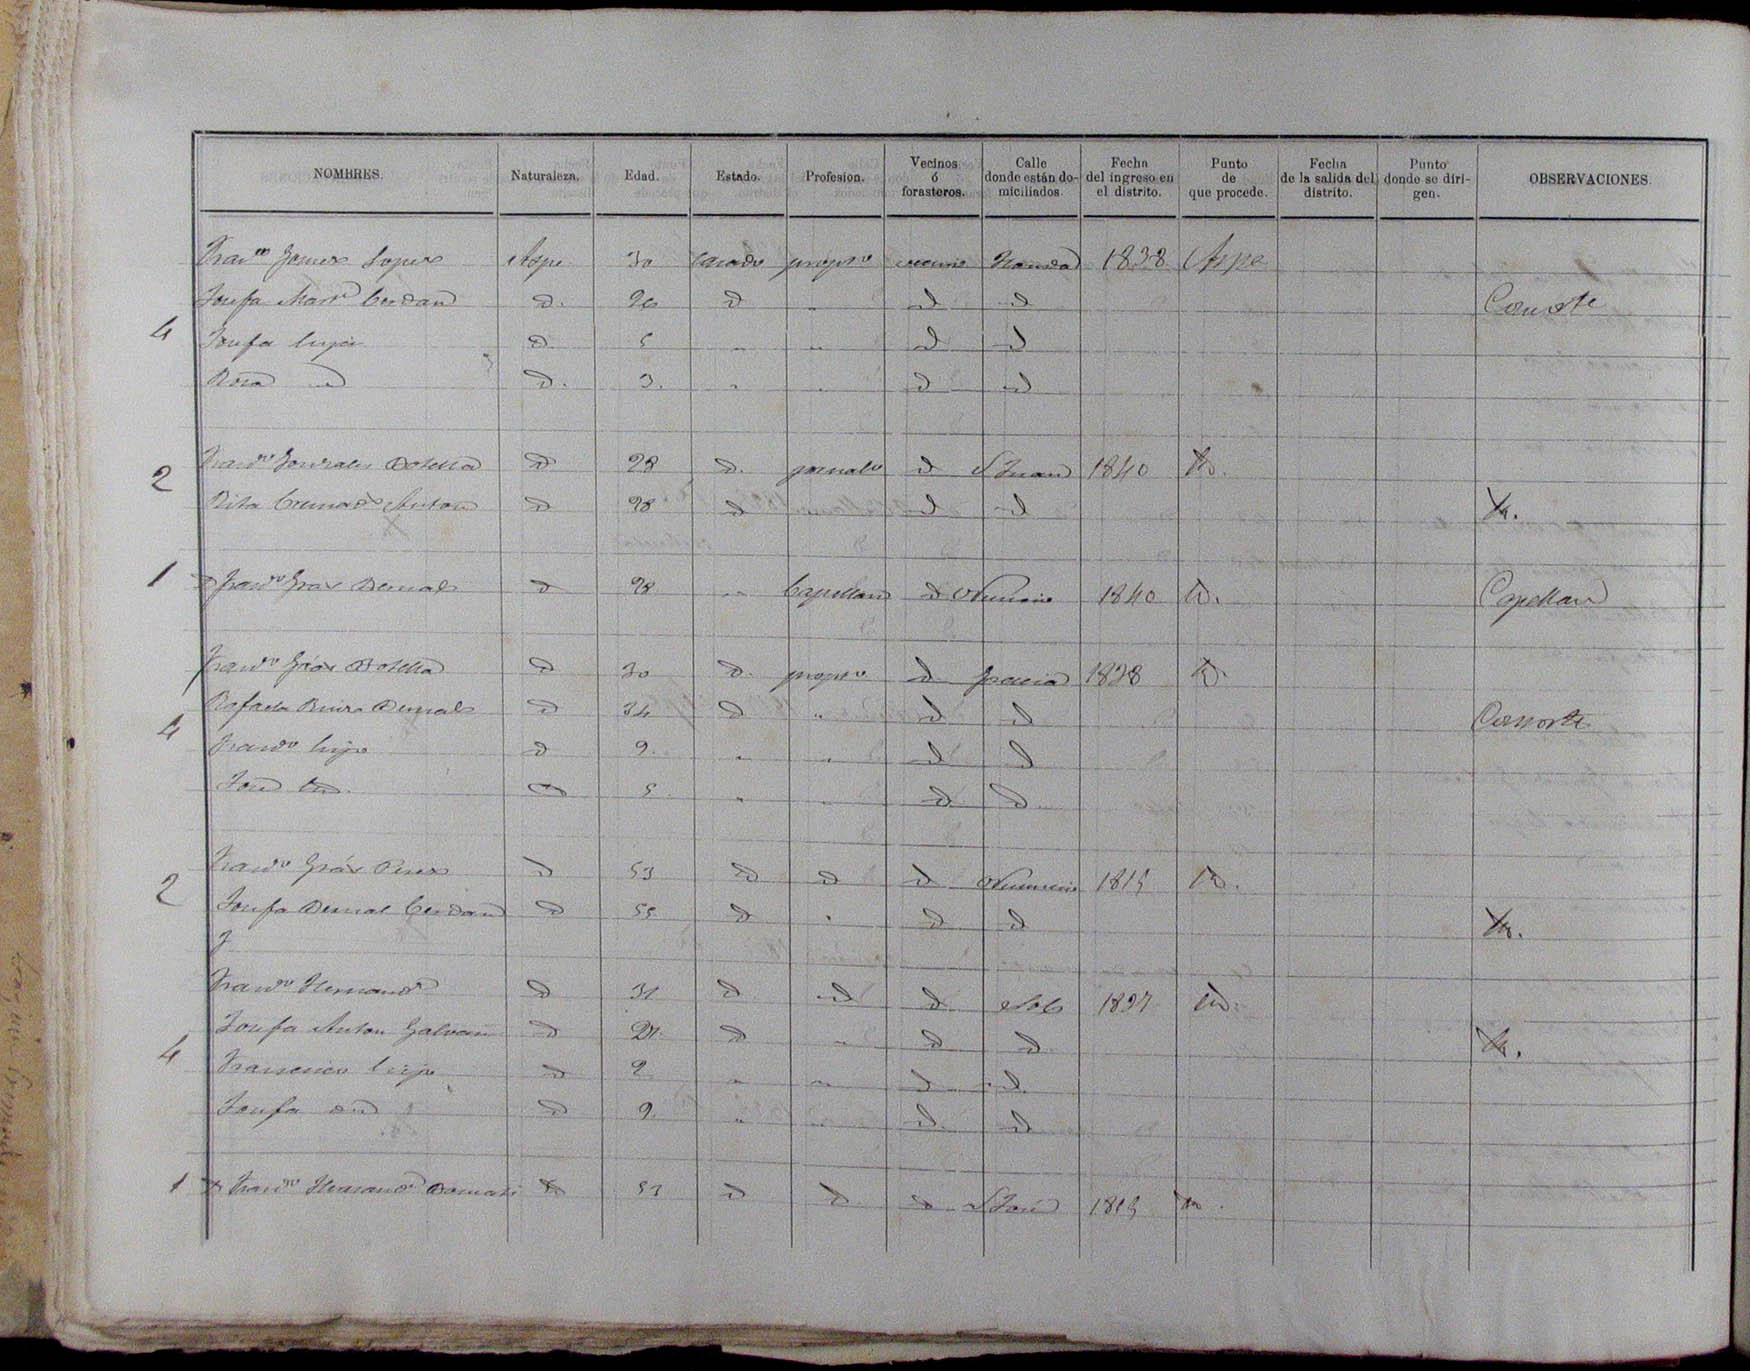 NOMBRES. Naturaleza. Edad. Estado. Profesion. Vecinos ó forasteros. Calle donde están domiciliados. Fecha del ingreso en el distrito. Punto de que procede. Fecha de la salida del distrito. Punto donde se dirigen. OBSERVACIONES.
Franco Gomez Lopez Aspe 30 Casado propro vecino 1838 Aspe
Josefa Marn Cerdan d. 26 d " d d Consorte
4 Josefa hija d. 5 " " d d
Rosa d d. 3. " " d d
2 Franco Gonzales Botella d 28 d. jornalo d S Juan 1840 Yd.
Rita Cremads Anton d 28 d d d Yd.
1 Franco Gras Bernal d 28 " Capellan d 1840 Yd. Capellan
Franco Gras Botella d 30 d. propro d Gracia 1828 Yd.
4 Rafaela Bernal d 34 d " d d Consorte
Franco hijo d 9. " " d d
José Yd. d 5 " " d d
2 Franco Gras Perez d 53 d d d 1815 Yd.
Josefa Bernal Cerdan d 55 d " d d Yd.
J
Franco Hernands d 31 d d d Sol 1837 Yd.
Josefa Anton Galvan d d " d d Yd.
4 Francisco hijo d 2 " " d d.
Josefa d d 9. " " d. d
1 Franco Hernands d 53 d d d S José 1815 Yd.